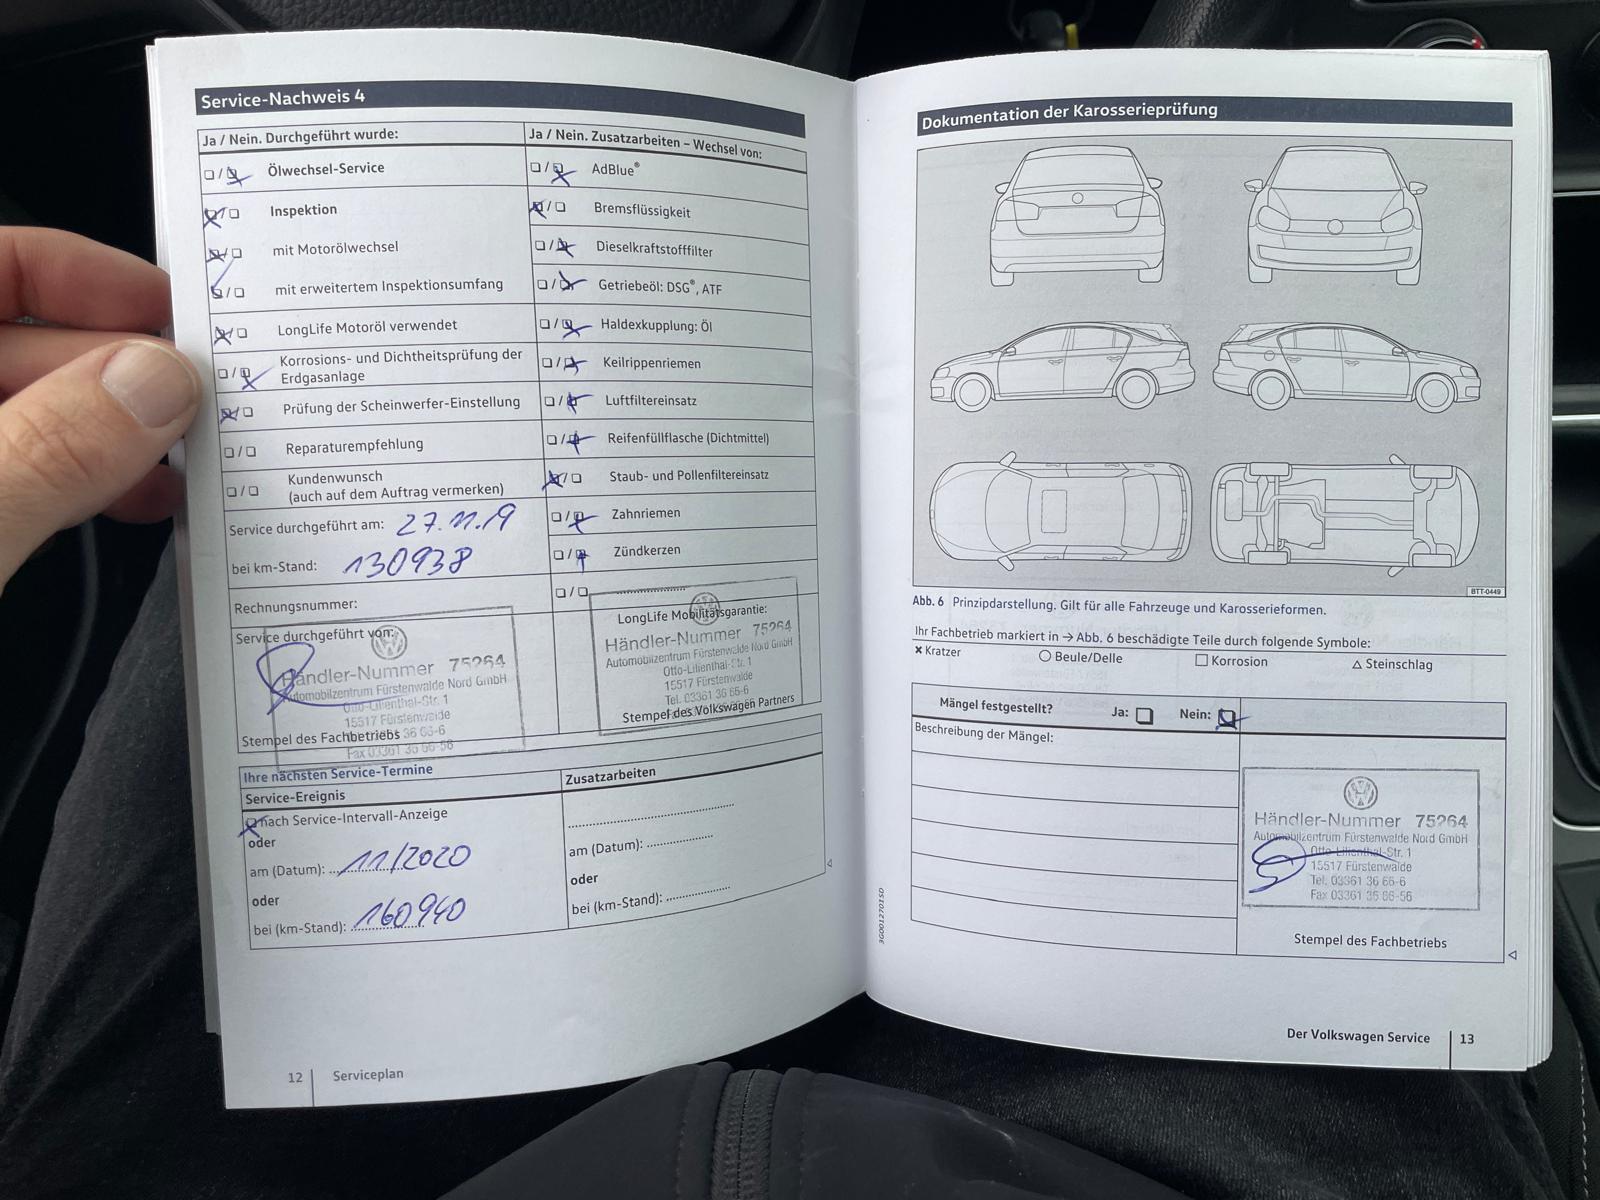 Service-Nachweis 4
Ja / Nein. Durchgeführt wurde:
Ölwechsel-Service
Inspektion
mit Motorölwechsel
mit erweitertem Inspektionsumfang
LongLife Motoröl verwendet
Korrosions- und Dichtheitsprüfung der
Erdgasanlage
Prüfung der Scheinwerfer-Einstellung
Reparaturempfehlung
Kundenwunsch
(auch auf dem Auftrag vermerken)
Service durchgeführt am: 27.11.19
bei km-Stand: 130938
Rechnungsnummer:
Service durchgeführt von:
Händler-Nummer 75264
Automobilzentrum Fürstenwalde Nord GmbH
Otto-Lilienthal-Str. 1
15517 Fürstenwalde
Stempel des Fachbetriebs
Fax 03361 36 66-56
Ja / Nein. Zusatzarbeiten – Wechsel von:
AdBlue®
Bremsflüssigkeit
Dieselkraftstofffilter
Getriebeöl: DSG®, ATF
Haldexkupplung: Öl
Keilrippenriemen
Luftfiltereinsatz
Reifenfüllflasche (Dichtmittel)
Staub- und Pollenfiltereinsatz
Zahnriemen
Zündkerzen
LongLife Mobilitätsgarantie:
Händler-Nummer 75264
Automobilzentrum Fürstenwalde Nord GmbH
Otto-Lilienthal-Str. 1
15517 Fürstenwalde
Tel. 03361 36 66-6
Stempel des Volkswagen Partners
Ihre nächsten Service-Termine
Service-Ereignis
nach Service-Intervall-Anzeige
oder
am (Datum): 11/2020
oder
bei (km-Stand): 160940
Zusatzarbeiten
am (Datum):
oder
bei (km-Stand):
12 Serviceplan
Dokumentation der Karosserieprüfung
BTT-0449
Abb. 6 Prinzipdarstellung. Gilt für alle Fahrzeuge und Karosserieformen.
Ihr Fachbetrieb markiert in → Abb. 6 beschädigte Teile durch folgende Symbole:
Kratzer
Beule/Delle
Korrosion
Steinschlag
Mängel festgestellt? Ja: Nein:
Beschreibung der Mängel:
Händler-Nummer 75264
Automobilzentrum Fürstenwalde Nord GmbH
Otto-Lilienthal-Str. 1
15517 Fürstenwalde
Tel. 03361 36 66-6
Fax 03361 36 66-56
Stempel des Fachbetriebs
3G0012701SD
Der Volkswagen Service 13